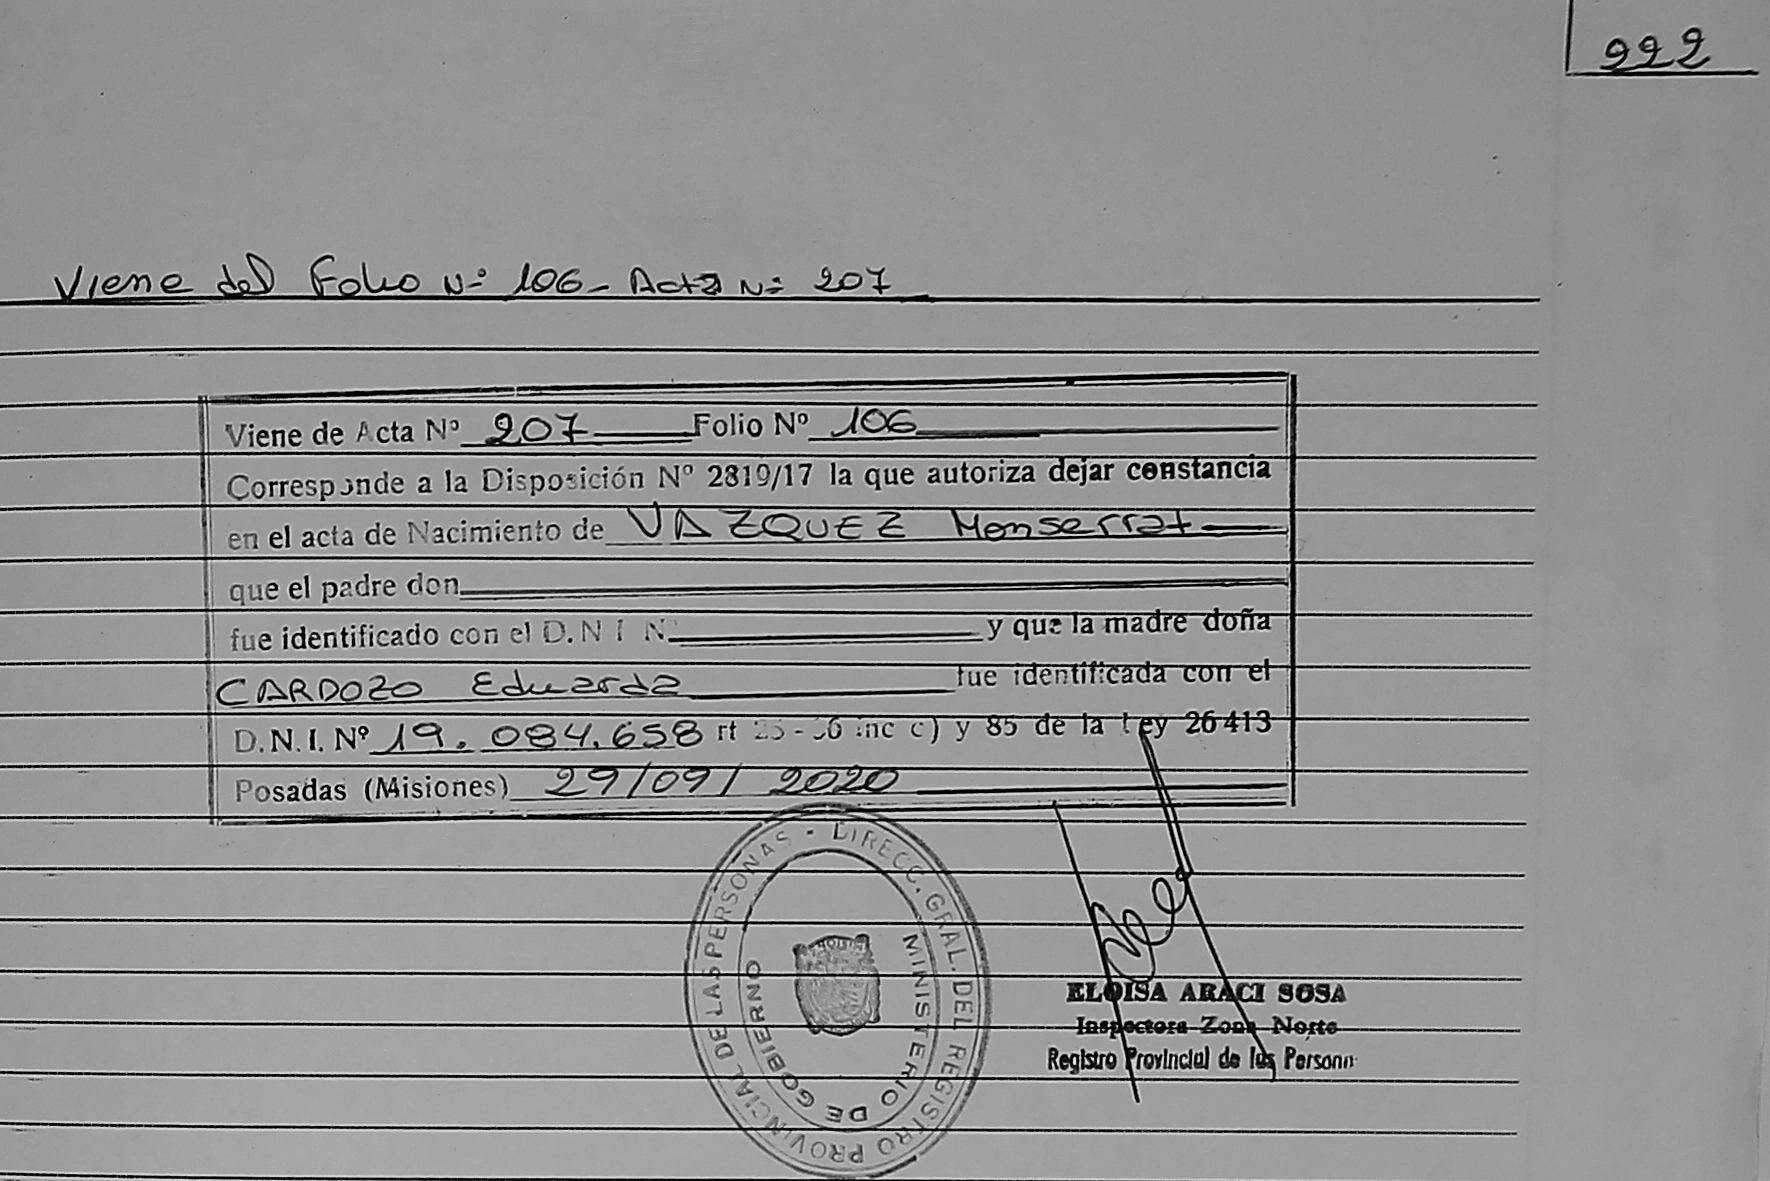 222
Viene del Folio Nº 106 - Acta Nº 207
Viene de Acta Nº 207 Folio Nº 106
Corresponde a la Disposición Nº 2819/17 la que autoriza dejar constancia
en el acta de Nacimiento de VAZQUEZ Monserrat
que el padre don
fue identificado con el D.N I N y que la madre doña
CARDOZO Eduarda fue identificada con el
D.N.I. Nº 19.084.658 rt inc c) y 85 de la Ley 26413
Posadas (Misiones) 29/09/2020
DIRECC. GRAL. DEL REGISTRO PROVINCIAL DE LAS PERSONAS
MINISTERIO DE GOBIERNO
ELOISA ARACI SOSA
Inspectora Zona Norte
Registro Provincial de las Person